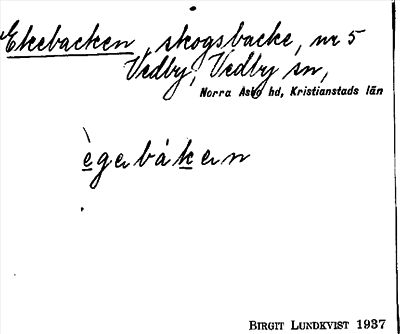 Ekebacken, skogsbacke, nr 5
Vedby, Vedby sn,
Norra Åsbo hd, Kristianstads län
ègɘbákɘn
BIRGIT LUNDKVIST 1937